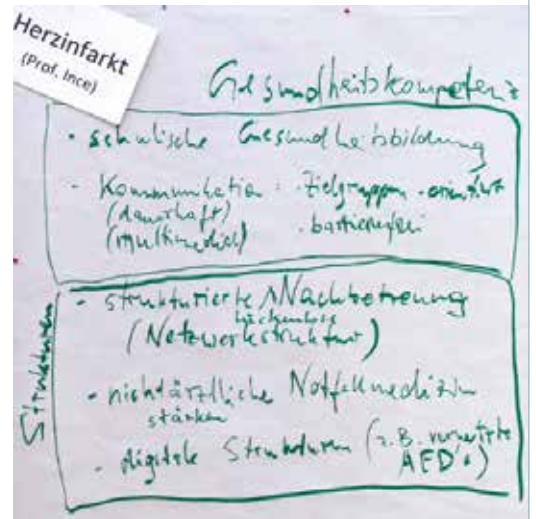 Herzinfarkt
(Prof. Ince)
Gesundheitskompetenz
• schulische Gesundheitsbildung
- Kommunikation: - Zielgruppen-orientiert
(dauerhaft) - barrierefrei
(multimedial)
Strukturen
- strukturierte Nachbetreuung
lückenlose
(Netzwerkstruktur)
- nichtärztliche Notfallmedizin
stärken
- digitale Strukturen (z.B. vernetzte
AED's)